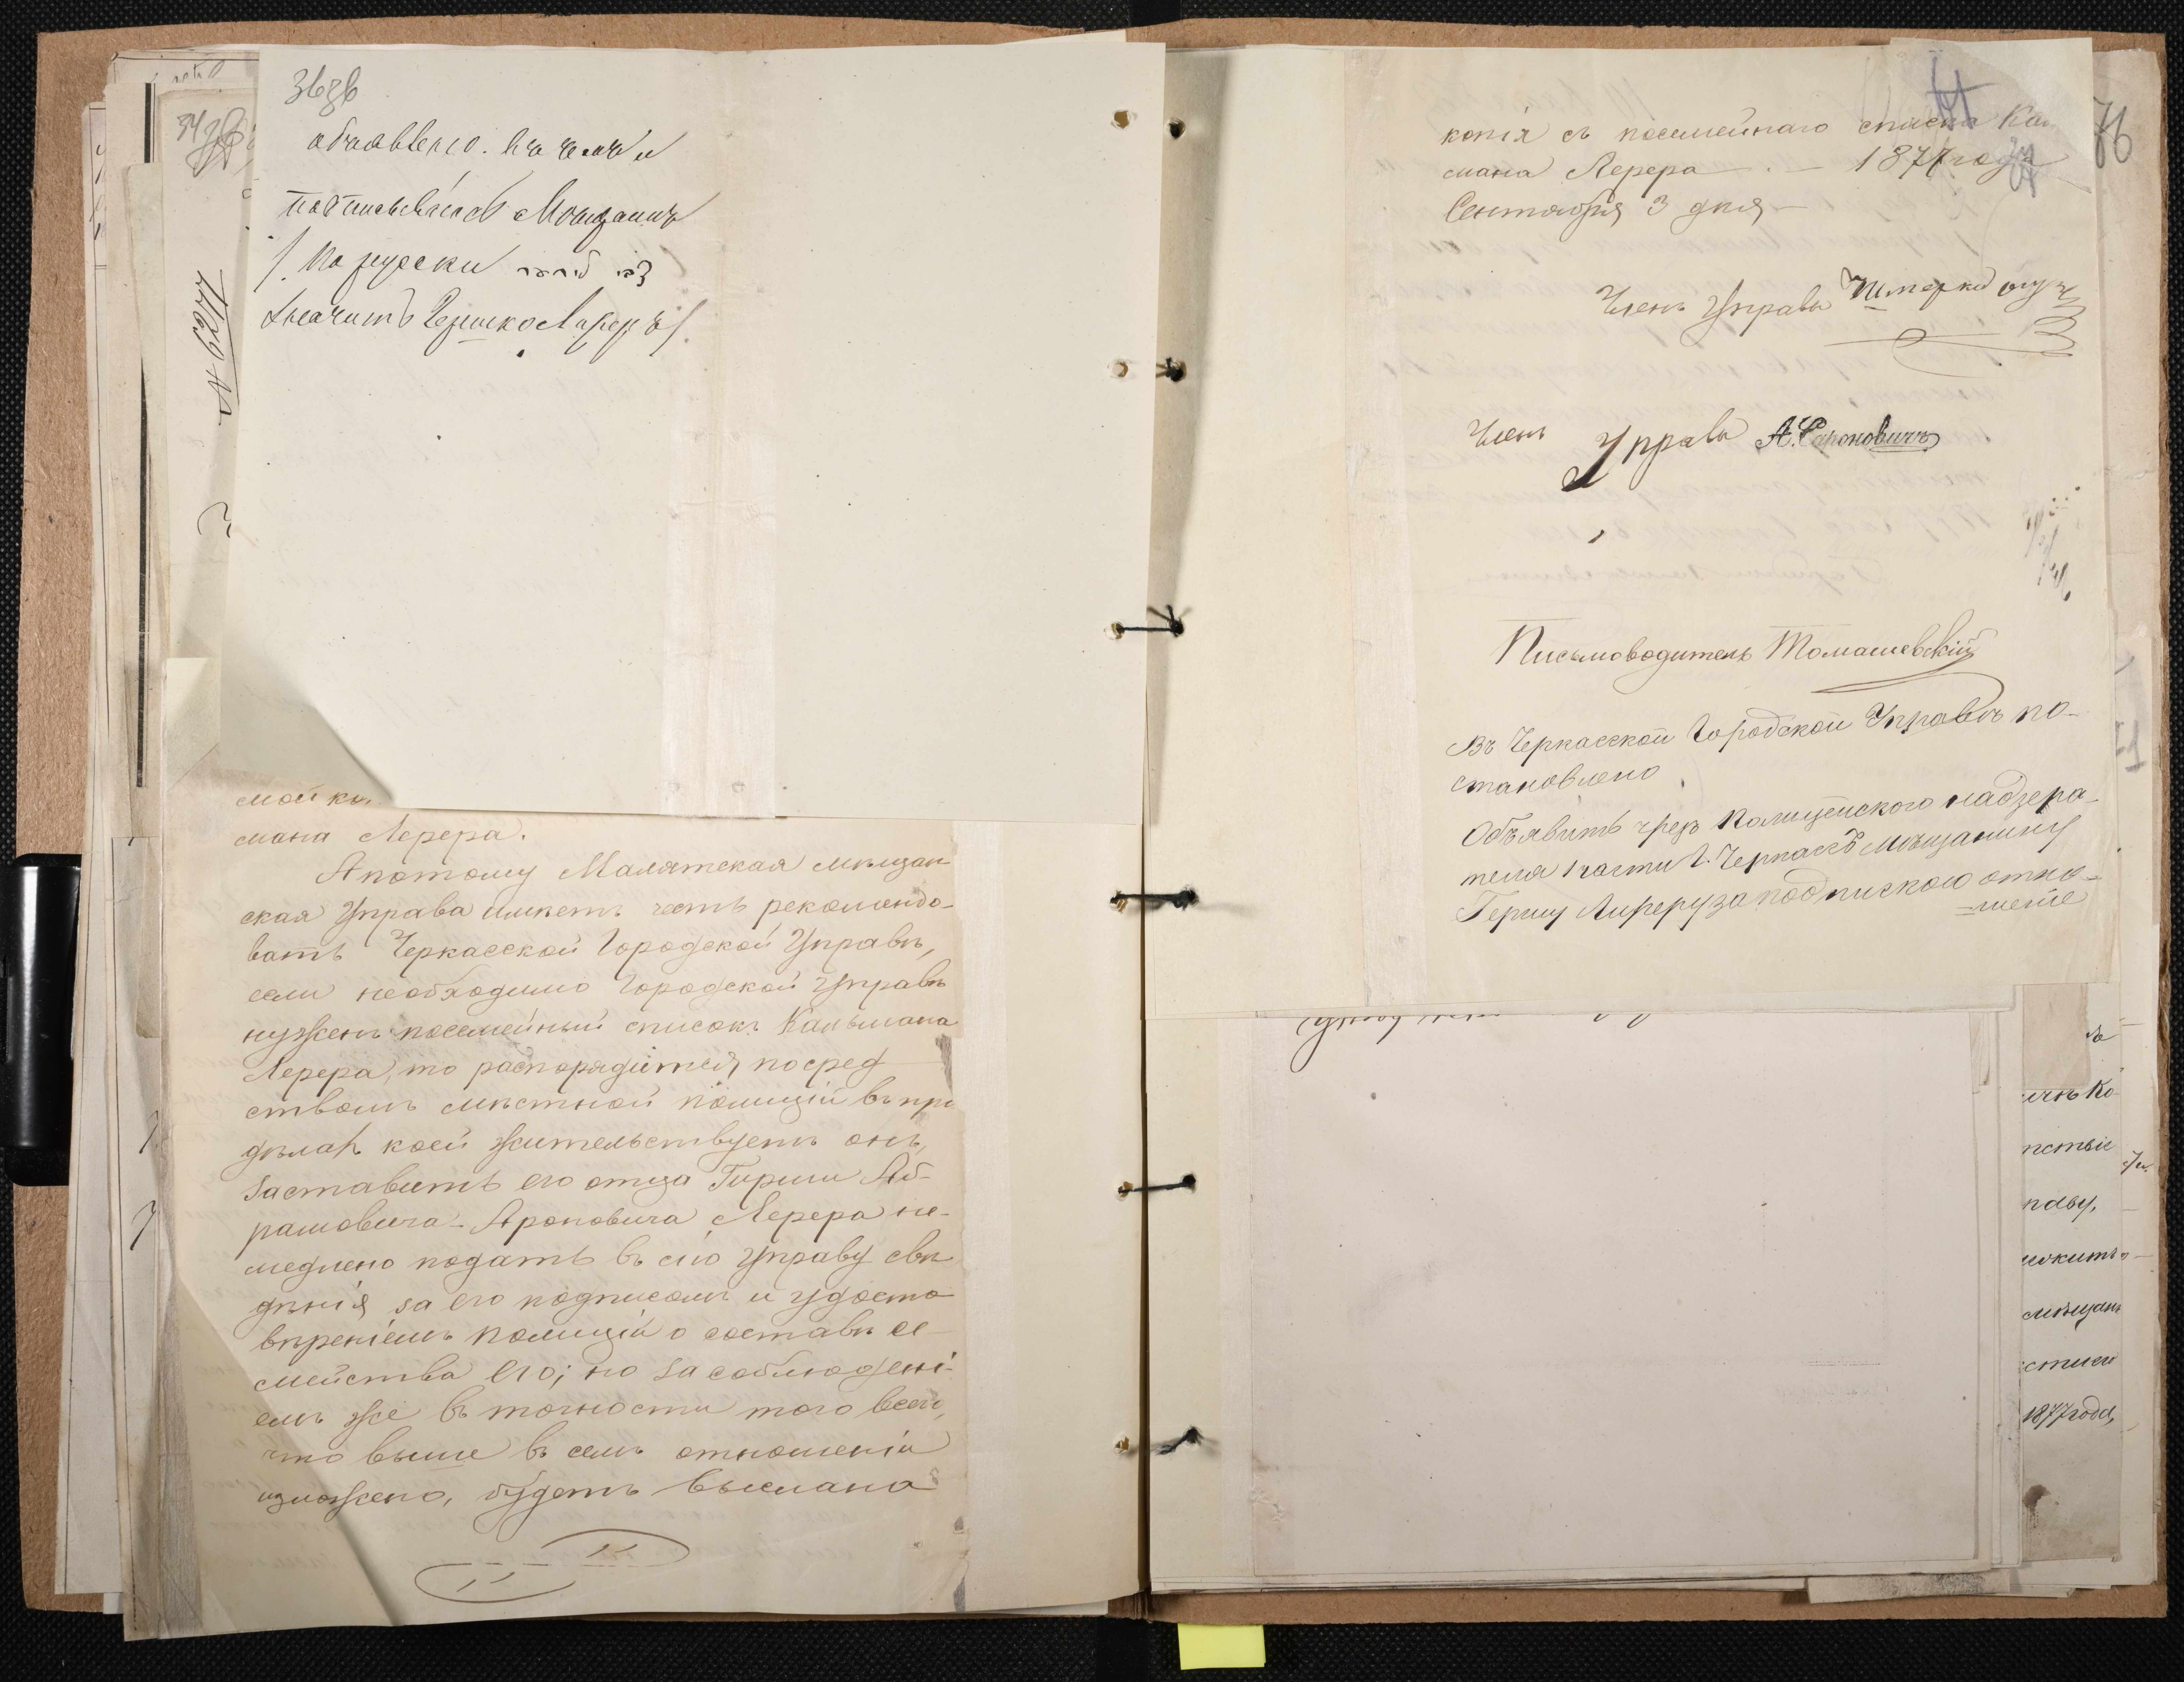 объявлено. и читалъ и
подписывался Мещанинъ
/. По русски
значитъ Гершко Лереръ /.
N 6297
мана Лерера.
А потому Малятская мѣщан
ская Управа имѣетъ честь рекомендо-
вать Черкасской Городской Управѣ,
если необходимо Городской Управѣ
нуженъ посемейный списокъ Кальмана
Лерера, то распорядится посред
ствомъ мѣстной полиціи въ пре
дѣлахъ коей жительствуетъ онъ,
заставить его отца Гирши Аб-
рамовича-Ароновича Лерера не-
медлено подать въ сію Управу свѣ
дѣнія за его подписомъ и удосто
вѣреніемъ полиціи о составѣ се-
мейства его; по за соблюдені-
емъ же въ точности того всего,
что выше въ семъ отношеніи
изложено, будетъ выслана
копія съ посемейнаго списка Каль
мана Лерера - 1877 года
Сентября 3 дня -
Членъ Управы
Членъ Управы А. Сароновичъ
Письмоводитель Томашевскій
Въ Черкасской Городской Управѣ по-
становлено
Объявить чрезъ Полицейского надзера-
теля 1 части Г. Черкасъ Мѣщанину
Гершу Лиреру за подпискою отно-
-шеніе
1877 года,